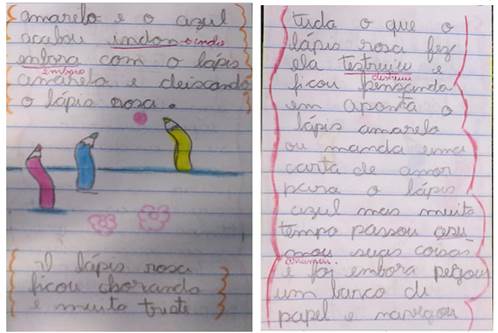 amarelo e o azul
acabou indon indo
embora com o lápis
embora
amarelo e deixando
o lápis rosa.
O lápis rosa
ficou chorando
e muito triste
tuda o que o
lápis rosa fez
ela testruiu e
destruiu
ficou pensanda
em aponta o
lápis amarelo
ou manda uma
carta de amor
para o lápis
azul mas muito
tempo passou
suas coisas
e foi embora pegou
um barco di
papel e navegou